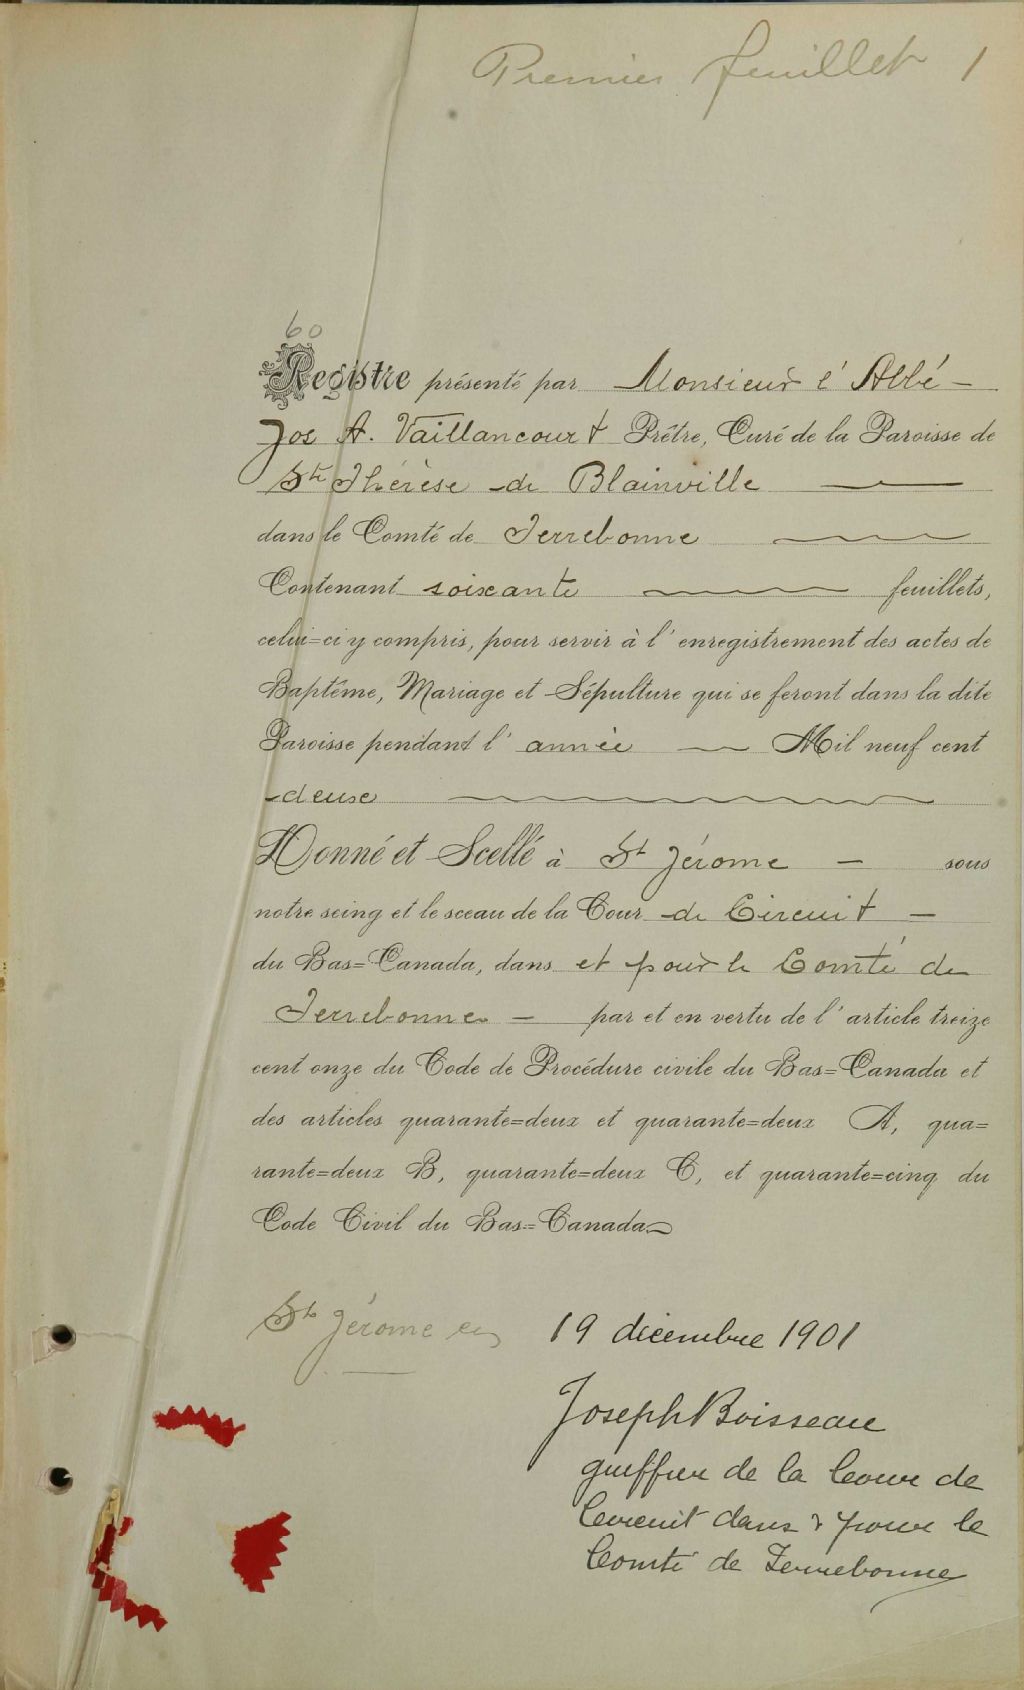 Premier feuillet 1
60
Registre présenté par Monsieur l'Abbé
Jos A. Vaillancourt Prêtre, Curé de la Paroisse de
Ste Thérèse de Blainville
dans le Comté de Terrebonne
Contenant soixante feuillets,
celui=ci y compris, pour servir à l'enregistrement des actes de
Baptême, Mariage et Sépulture qui se feront dans la dite
Paroisse pendant l'année Mil neuf cent
deuse
Donné et Scellé à St Jérome sous
notre seing et le sceau de la Cour de Circuit
du Bas=Canada, dans et pour le Comté de
Terrebonne par et en vertu de l'article treize
cent onze du Code de Procédure civile du Bas=Canada et
des articles quarante=deux et quarante=deux A, qua=
rante=deux B, quarante=deux C, et quarante=cinq du
Code Civil du Bas=Canada
St Jérome ce 19 décembre 1901
Joseph Boisseau
greffier de la Cour de
Circuit dans & pour le
Comté de Terrebonne